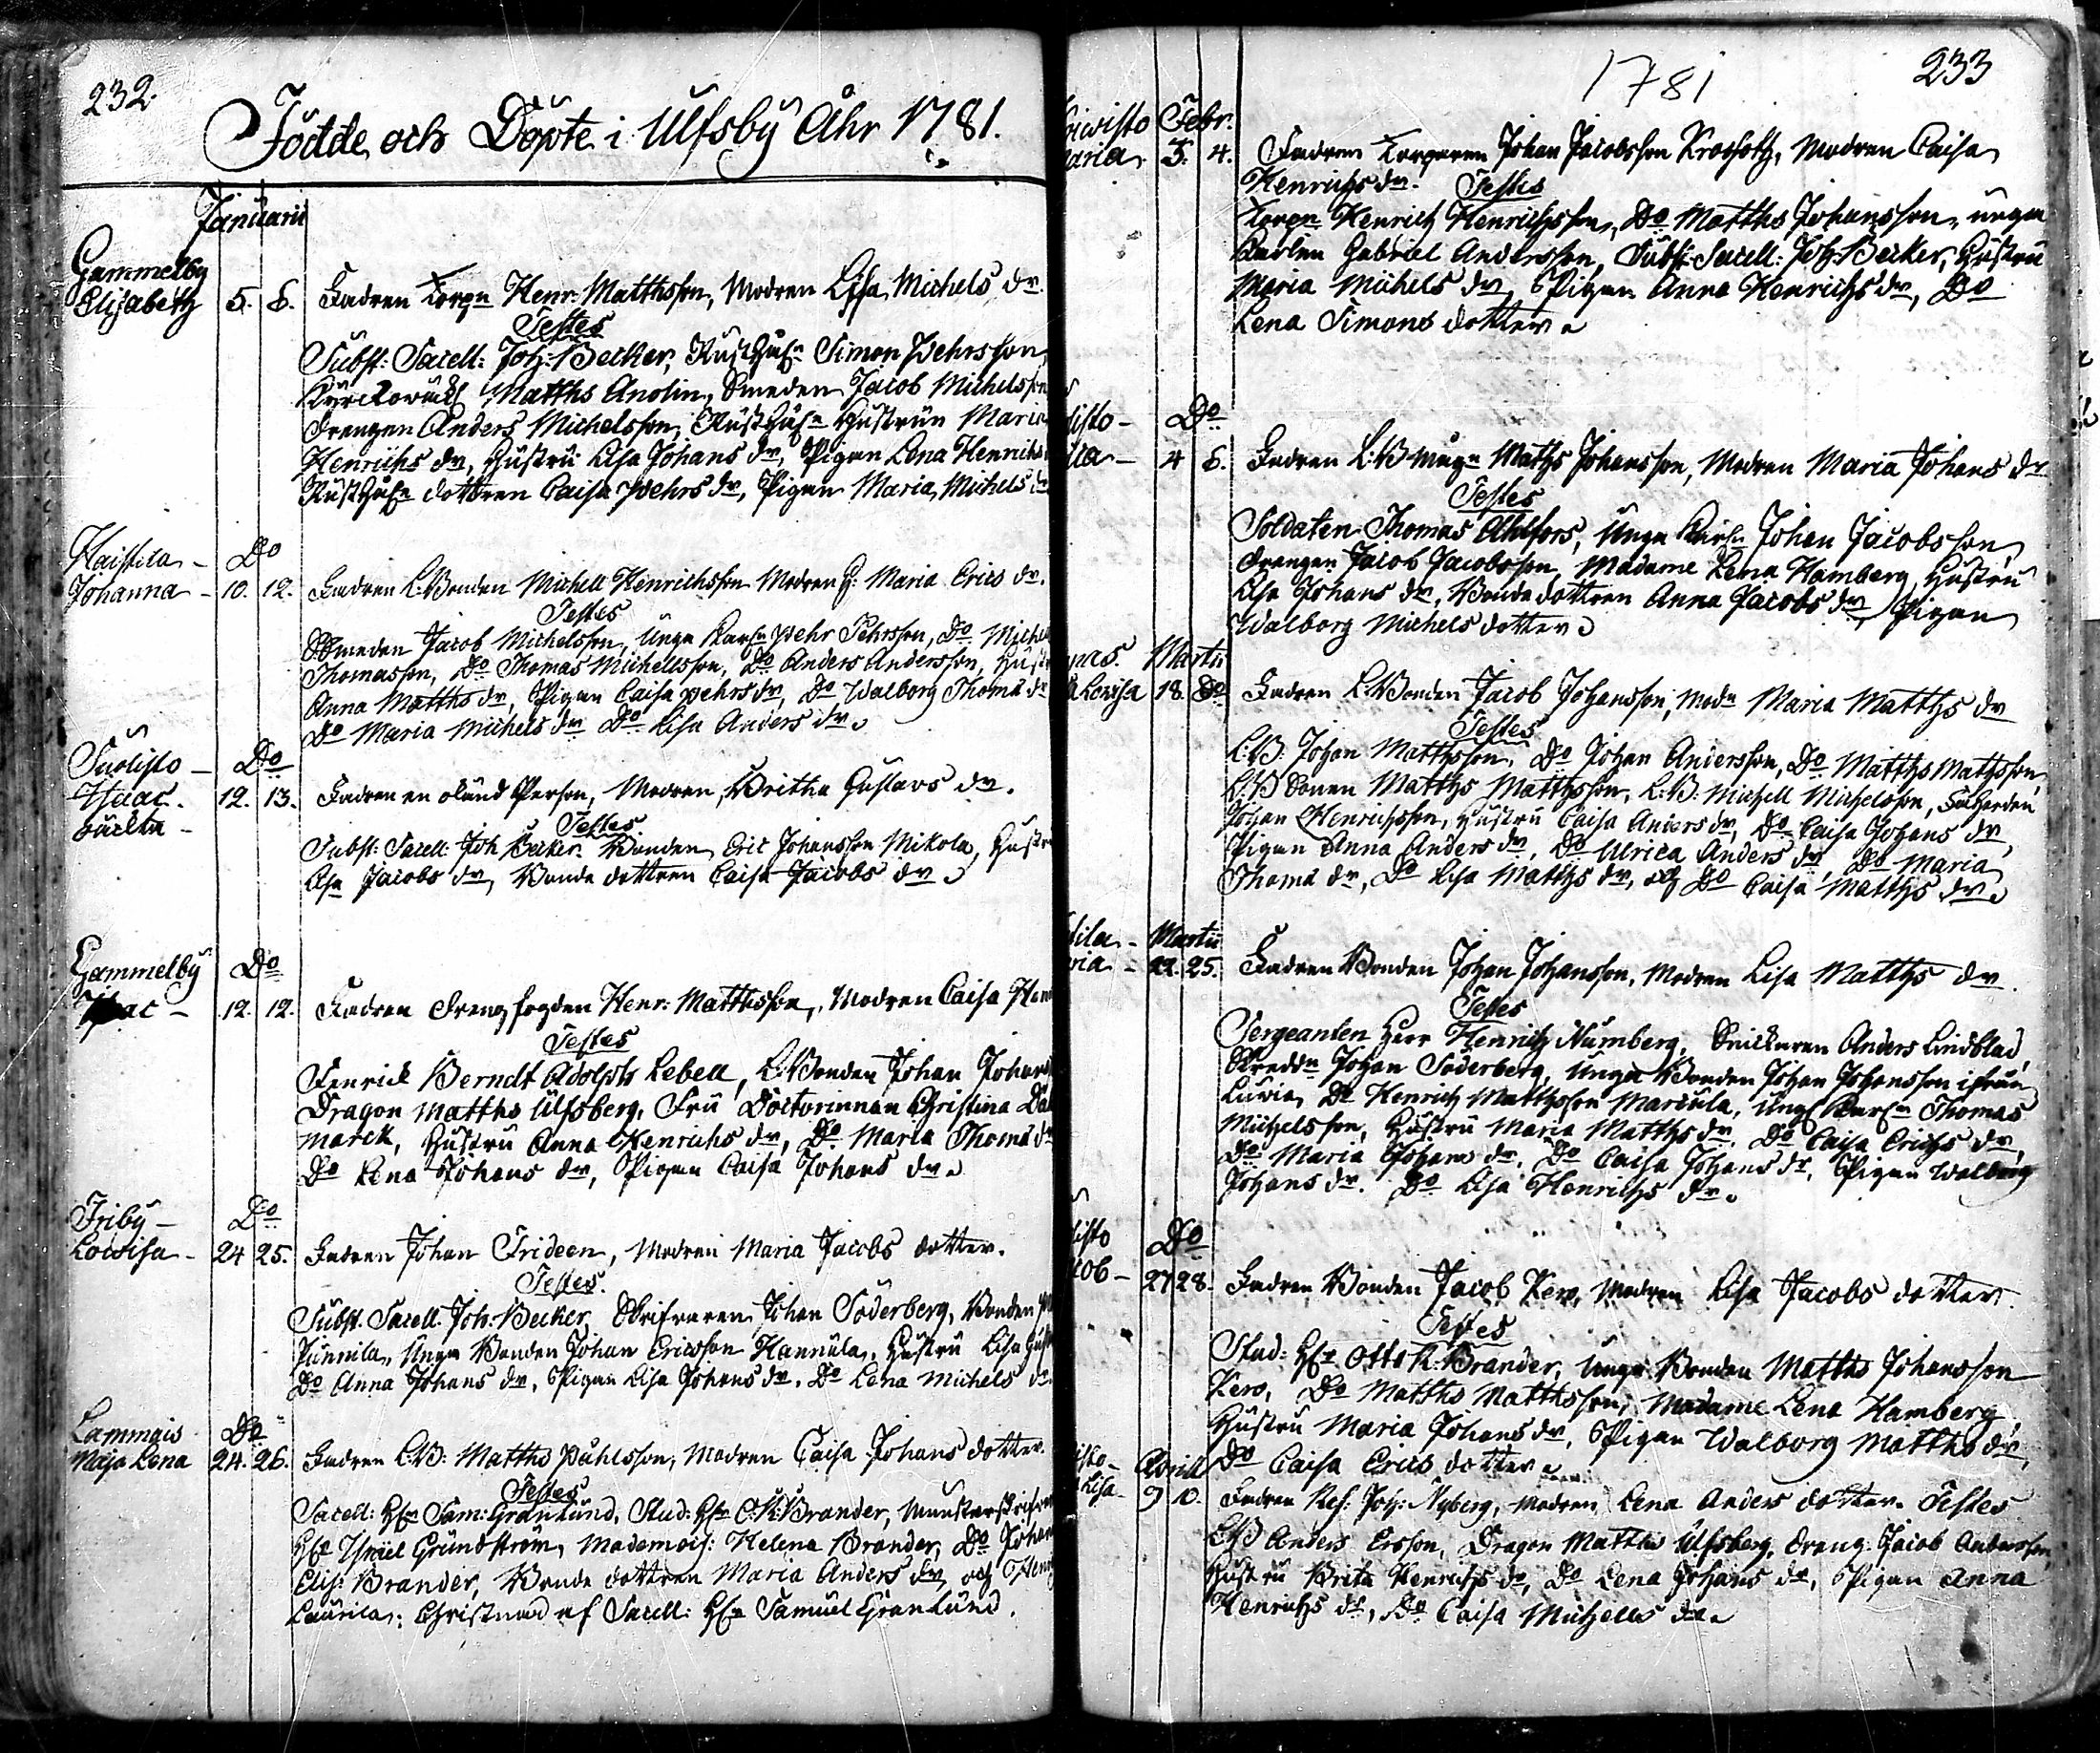 232.
Födde och Döpte i Ulfsby Åhr 1781.
Januarii
Gammelby
Elisabeth 5. 6. Fadren Torpn Henr: Matthsson, Modren Lisa Michels dr.
Testes
Subst: Sacell: Joh: Becker, Rusthåln Simon Pehrsson,
Matths Anolin, Smeden Jacob Michelsson
Drengen Anders Michelsson, Rusthåln Hustrun Maria
Henrichs dr, Hustru Lisa Johans dr, Pigan Lena Henrichs
Rusthåln dottren Caisa Pehrs dr, Pigan Maria Michels dr
Haistila - Do
Johanna - 10. 12. Fadren L: Bonden Michell Henrichsson Modren H: Maria Erics dr.
Testes
Smeden Jacob Michelsson, Unga Karln Pehr Pehrsson, Do Michel
Thomasson, Do Thomas Michellsson, Do Anders Andersson, Hustr
Anna Matths dr, Pigan Caisa Pehrs dr, Do Walborg Thoma dr
Do Maria Michels dr Do Lisa Anders dr.
Suolisto - Do
Isaac. 12. 13. Fadren en okänd Person, Modren Britha Gustavs dr.
oäckta -
Testes
Subst: Sacell: Joh Becker. Bonden Eric Johansson Mikola, Hustr
Lisa Jacobs dr, Bonde dottren Caisa Jacobs dr.
Gammelby Do
Isac - 12. 12. Fadren Dreng fogden Henr: Matthsson, Modren Caisa Hen
Testes
Fenrick Berndt Adolph Lebell, L: Bonden Johan Johans
Dragon Matths Ulfsberg, Fru Doctorinnan Christina Dal
marck, Hustru Anna Henrichs dr, Do Maria Thoma dr
Do Lena Johans dr, Pigan Caisa Johans dr.
Friby - Do
Lowisa - 24 25. Fadren Johan Frideen, Modren Maria Jacobs dotter.
Testes.
Subst. Sacell. Joh: Becker, Skrifvaren Johan Söderberg, Bonden
Junnila, Unga Bonden Johan Ericsson Hannula, Hustru Lisa
Do Anna Johans dr, Pigan Lisa Johans dr. Do Lena Michels dr.
Lammais Do
Maja Lena 24. 26. Fadren L: B: Matths Påhlsson, Modren Caisa Johans dotter.
Testes
Sacell: Hr Sam: Granlund, Stud: Hr O: R: Brander,
Hr Israel Grundström, Mademois: Helena Brander, Do Johan
Elis: Brander, Bonde dottren Maria Anders dr, och
Laurila. Christnad af Sacell: Hr Samuel Granlund.
1781
233
Febr.
aria. 3. 4. Fadren Torparen Johan Jacobsson, Modren Caisa
Henrichs dr. Testes
Torpn Henrich Henrichsson, Do Matths Johansson, unga
Karlen Gabriel Andersson, Subst: Sacell: Joh: Becker, Hustru
Maria Michels dr, Pigan Anna Henrichs dr, Do
Lena Simons dotter.
listo - Do
4 6. Fadren L: B Matths Johansson, Modren Maria Johans dr
Testes
Soldaten Thomas Ahlfors, Unga Karln Johan Jacobsson,
Drengen Jacob Jacobsson, Madame Lena Hamberg, Hustru
Lisa Johans dr, Bonde dottren Anna Jacobs dr, Pigan
Walborg Michels dotter.
Martii
Lowisa 18. Do Fadren L: Bonden Jacob Johansson, Modn Maria Matths dr
Testes
L: B: Johan Matthsson, Do Johan Andersson, Do Matths Mathsson,
L: B Sonen Matths Matthsson, L: B: Michell Michelsson,
Johan Henrichsson, Hustru Caisa Anders dr, Do Caisa Johans dr,
Pigan Anna Anders dr, Do Ulrica Anders dr, Do Maria
Thoma dr, Do Lisa Matths dr, och Do Caisa Matths dr.
tila - Martii
ria - 22. 25. Fadren Bonden Johan Johansson, Modren Lisa Matths dr.
Testes
Sergeanten Herr Henrich Numberg, Snickaren Anders Lindblad,
Johan Söderberg, Unga Bonden Johan Johansson ifrån
Do Henrich Matthsson Marcula, Unga Karln Thomas
Michelsson, Hustru Maria Matths dr, Do Caisa Erichs dr,
Do Maria Johans dr, Do Caisa Johans dr, Pigan Walborg
Johans dr. Do Lisa Henrichs dr.
listo Do
cob - 27 28. Fadren Bonden Jacob Kerv, Modren Lisa Jacobs dotter.
Testes
Stud: Hr Otto R: Brander, Unga Bonden Matths Johansson
Kerv, Do Matths Matthsson, Madame Lena Hamberg,
Hustru Maria Johans dr, Pigan Walborg Matths dr,
Do Caisa Erics dotter.
April
Lisa - 9 10. Fadren Ref: Joh: Nyberg, Modren Lena Anders dotter. Testes
L B Anders Ersson, Dragon Matths Ulfsberg, Dreng: Jacob Andersson
Hustru Brita Henrichs dr, Do Lena Johans dr, Pigan Anna
Henrichs dr, Do Caisa Michells dr.